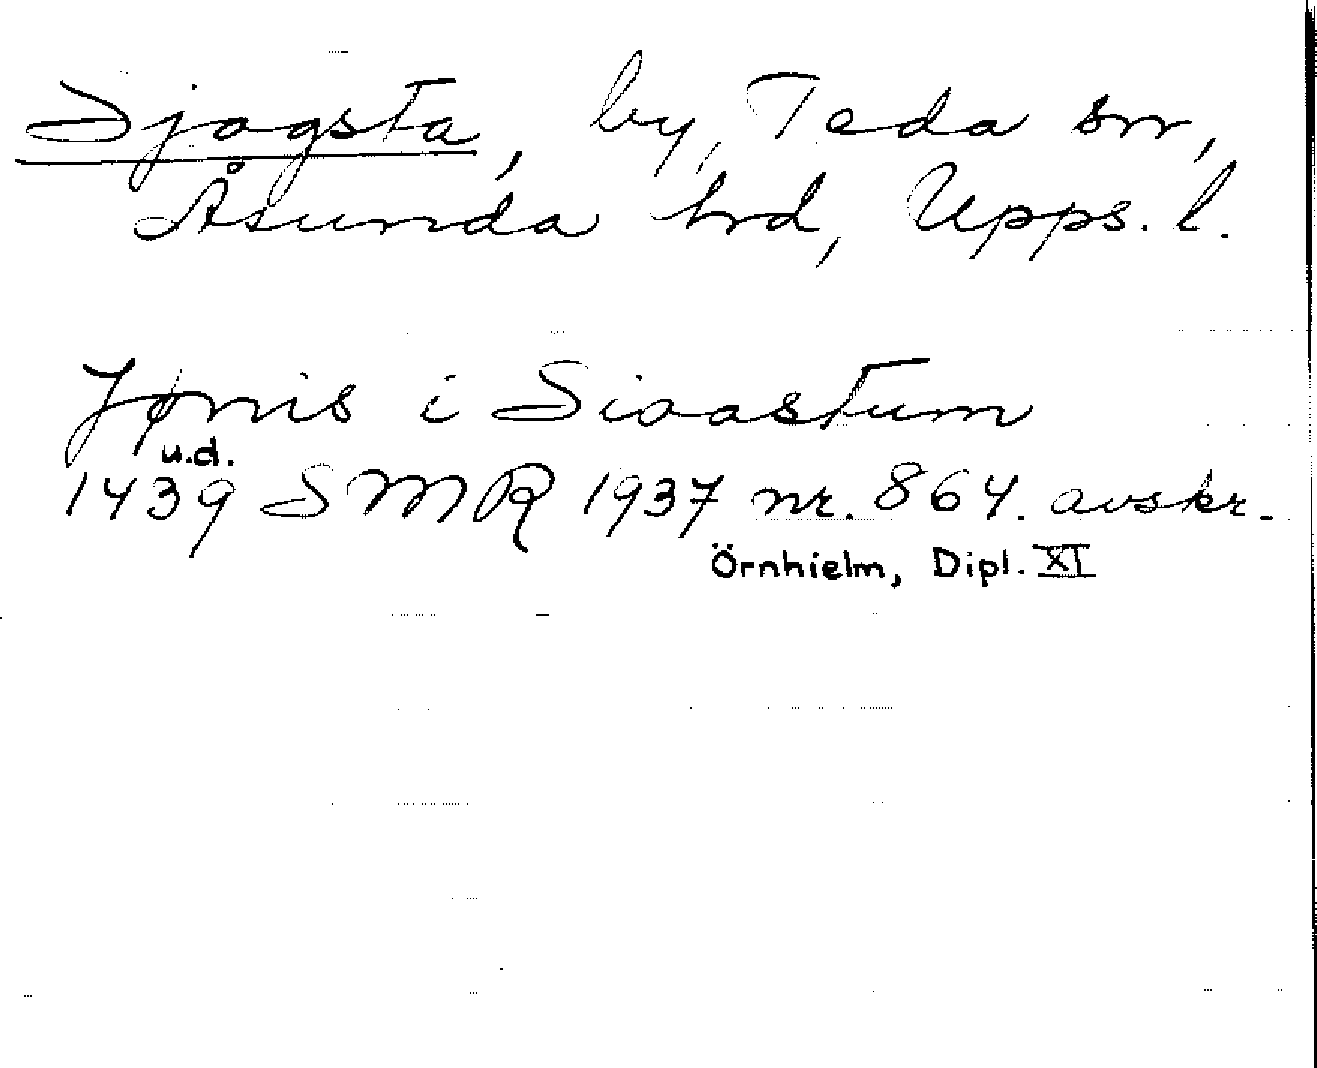 Sjogsta, by, Teda sn,
Åsunda hrd, Upps. l.
Jønis i Sioastum
u.d.
1439 SMR 1937 nr. 864. avskr.
Örnhielm, Dipl. XI